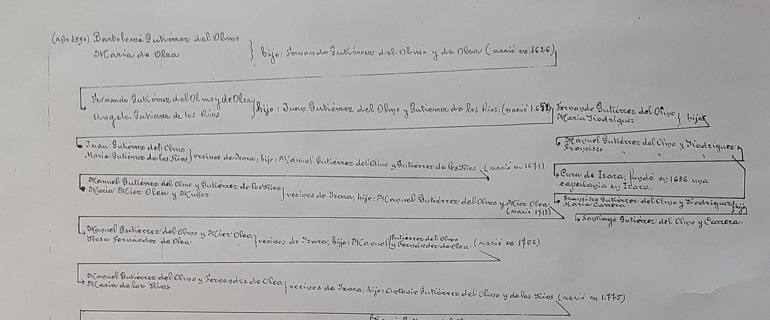 (año 1590) Bartolomé Gutiérrez del Olmo
Maria de Olea
hijo: Fernando Gutiérrez del Olmo y de Olea (nació en 1626)
Fernando Gutiérrez del Olmo y de Olea
Angela Gutierrez de los Rios
hijo: Juan Gutiérrez del Olmo y Gutierrez de los Rios. (nació en
Fernando Gutiérrez del Olmo
Maria Rodriguez
hijos
Juan Gutiérrez del Olmo
Maria Gutierrez de los Rios
vecinos de Izara; hijo: Manuel Gutiérrez del Olmo y de los Rios (nació en 1671)
Manuel Gutiérrez del Olmo y Rodriguez
Francisco " " "
Cura de Izara, fundó en 1686 una
capellania en Izara.
Manuel Gutiérrez del Olmo y Gutiérrez de los Rios
Maria Mier Olea y
vecinos de Izara, hijo: Manuel Gutiérrez del Olmo y Mier Olea
(nació
Francisco Gutiérrez del Olmo y Rodriguez
Maria Carrera
hijo
Santiago Gutiérrez del Olmo y Carrera.
Manuel Gutiérrez del Olmo y Mier Olea
Rosa Fernandez de Olea
vecinos de Izara; hijo: Manuel Gutiérrez del Olmo
y Fernández de Olea (nació en
Manuel Gutiérrez del Olmo y Fernandez de Olea
Maria de los Rios
vecinos de Izara; hijo: Antonio Gutiérrez del Olmo y de los Rios (nació en 1.775)